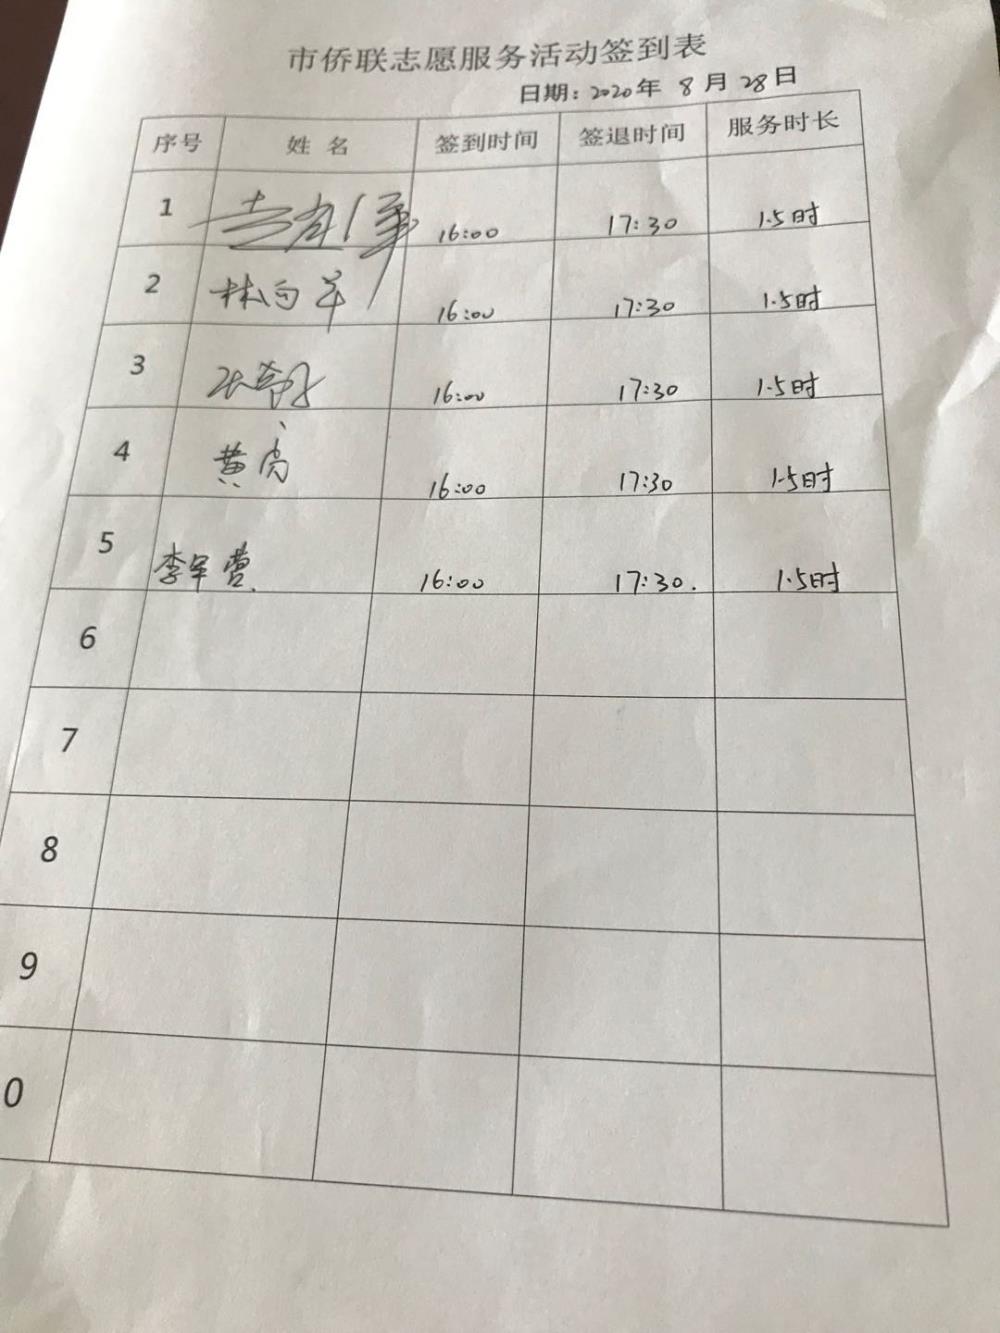 市侨联志愿服务活动签到表
日期：2020年 8 月 28日
序号 姓 名 签到时间 签退时间 服务时长
1 16:00 17:30 1.5时
2 16:00 17:30 1.5时
3 16:00 17:30 1.5时
4 黄亮 16:00 17:30 1.5时
5 李军营. 16:00 17:30. 1.5时
6
7
8
9
0